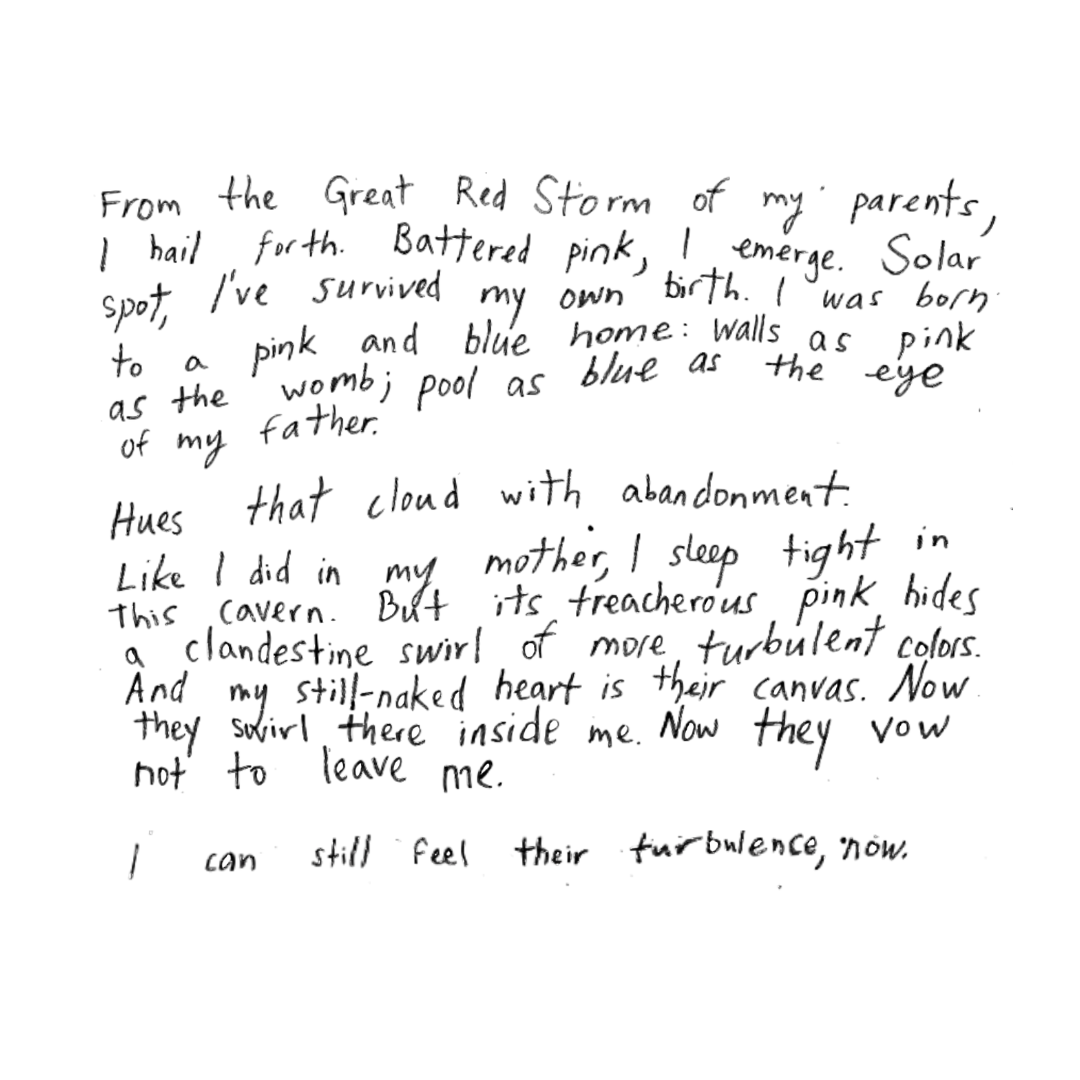 From the Great Red Storm of my parents,
I hail forth. Battered pink, I emerge. Solar
spot, I've survived my own birth. I was born
to a pink and blue home: walls as pink
as the womb; pool as blue as the eye
of my father.
Hues that cloud with abandonment.
Like I did in my mother, I sleep tight in
this cavern. But its treacherous pink hides
a clandestine swirl of more turbulent colors.
And my still-naked heart is their canvas. Now
they swirl there inside me. Now they vow
not to leave me.
I can still feel their turbulence, now.